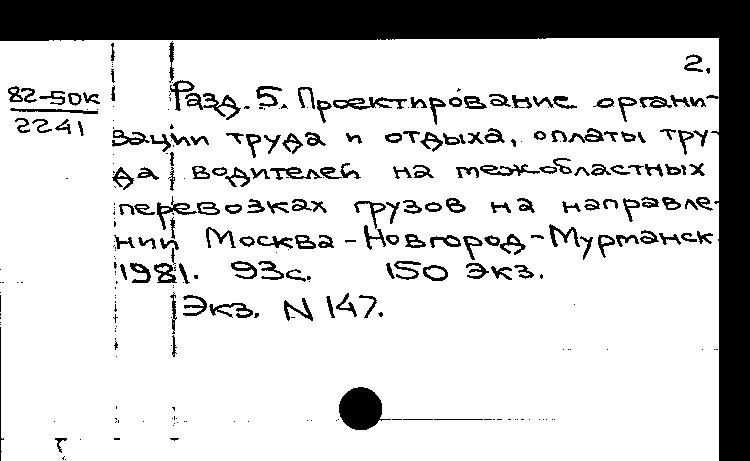 2.
82-50к
2241
Разд. 5. Проектирование органи-
зации труда и отдыха, оплаты тру-
да водителей на межобластных
перевозках грузов на направле-
нии Москва - Новгород - Мурманск.
1981. 93с. 150 экз.
Экз. N 147.